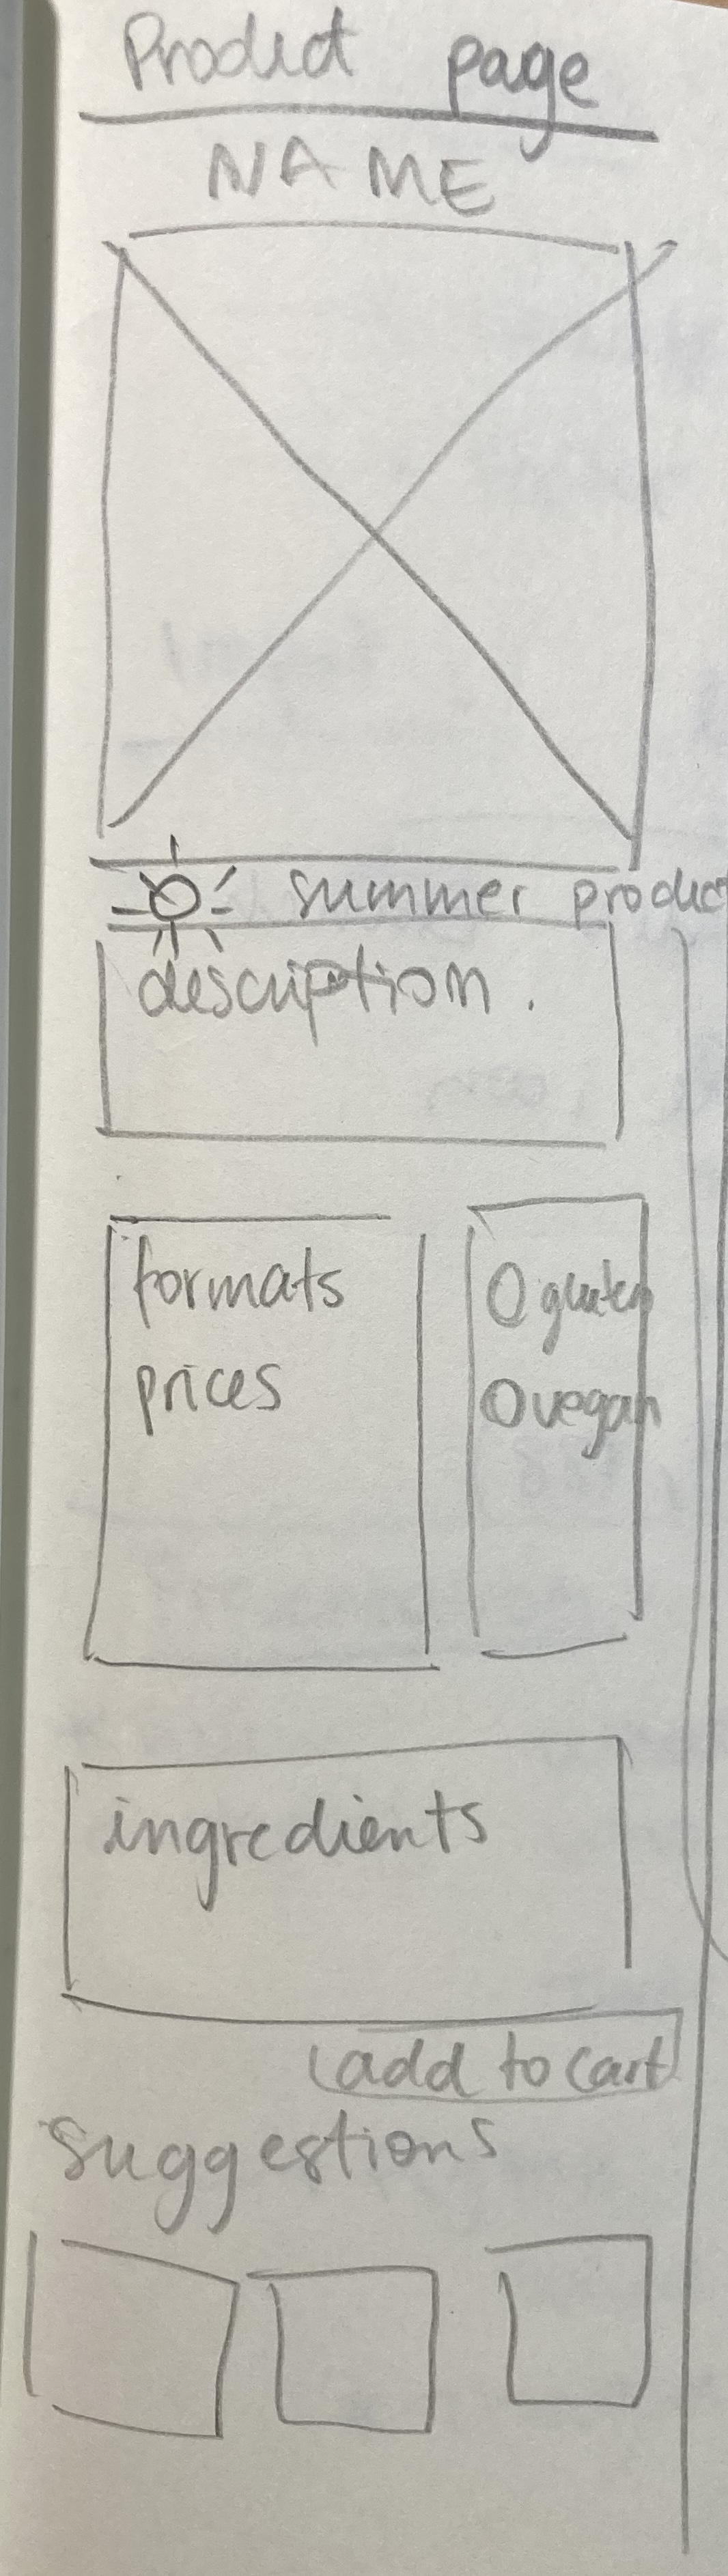 Product page
NAME
summer product
description.
formats
prices
O gluten
O vegan
ingredients
add to cart
suggestions